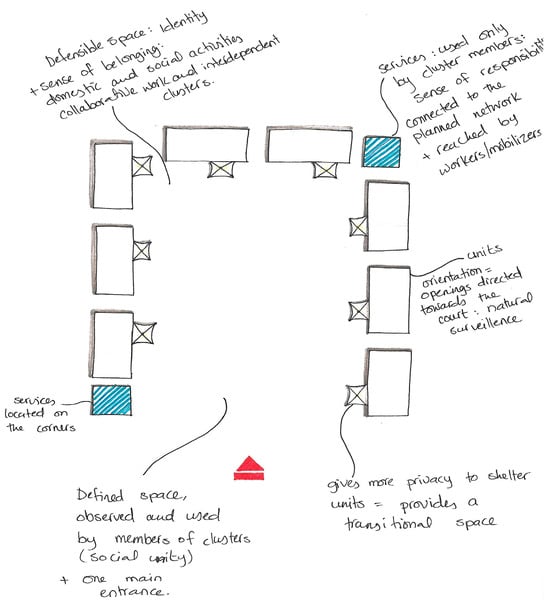 Defensible space: Identity
+ sense of belonging:
domestic and social activities
collaborative work and interdependent
clusters.
services: used only
by cluster members:
sense of responsibility
connected to the
planned network
+ reached by
workers/mobilizers
units
orientation =
openings directed
towards the
court: natural
surveillence
services
located on
the corners
gives more privacy to shelter
units = provides a
transitional space
Defined space,
observed and used
by members of clusters
(social unity)
+ one main
entrance.